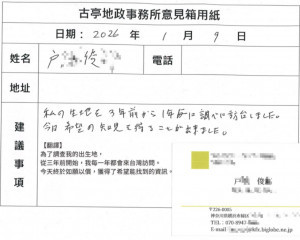 古亭地政事務所意見箱用紙
日期：2026年1月9日
姓名
戸 俊
電話
地址
建議事項
私の生地を3年前から1年毎に調べに訪台しました。
今日希望の知見を得ることが出来ました。
【翻譯】
為了調查我的出生地，
從三年前開始，我每一年都會來台灣訪問。
今天終於如願以償，獲得了希望能找到的資訊。
戸 俊